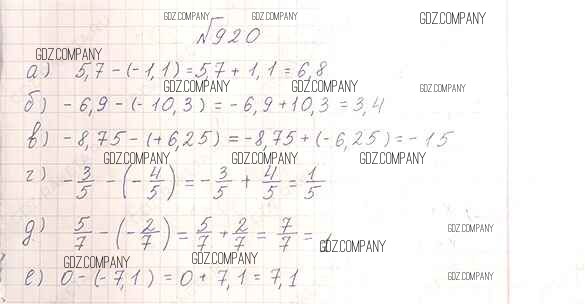 GDZ.COMPANY GDZ.COMPANY GDZ.COMPANY
№920
GDZ.COMPANY
а) 5,7 - (-1,1) = 5,7 + 1,1 = 6,8
GDZ.COMPANY GDZ.COMPANY GDZ.COMPANY
б) - 6,9 - (- 10,3) = - 6,9 + 10,3 = 3,4
в) - 8,75 - (+ 6,25) = - 8,75 + (- 6,25) = - 15
GDZ.COMPANY GDZ.COMPANY GDZ.COMPANY
г) - 3/5 - (- 4/5) = - 3/5 + 4/5 = 1/5
д) 5/7 - (- 2/7) = 5/7 + 2/7 = 7/7 = 1
GDZ.COMPANY
GDZ.COMPANY
GDZ.COMPANY GDZ.COMPANY
е) 0 - (- 7,1) = 0 + 7,1 = 7,1
GDZ.COMPANY